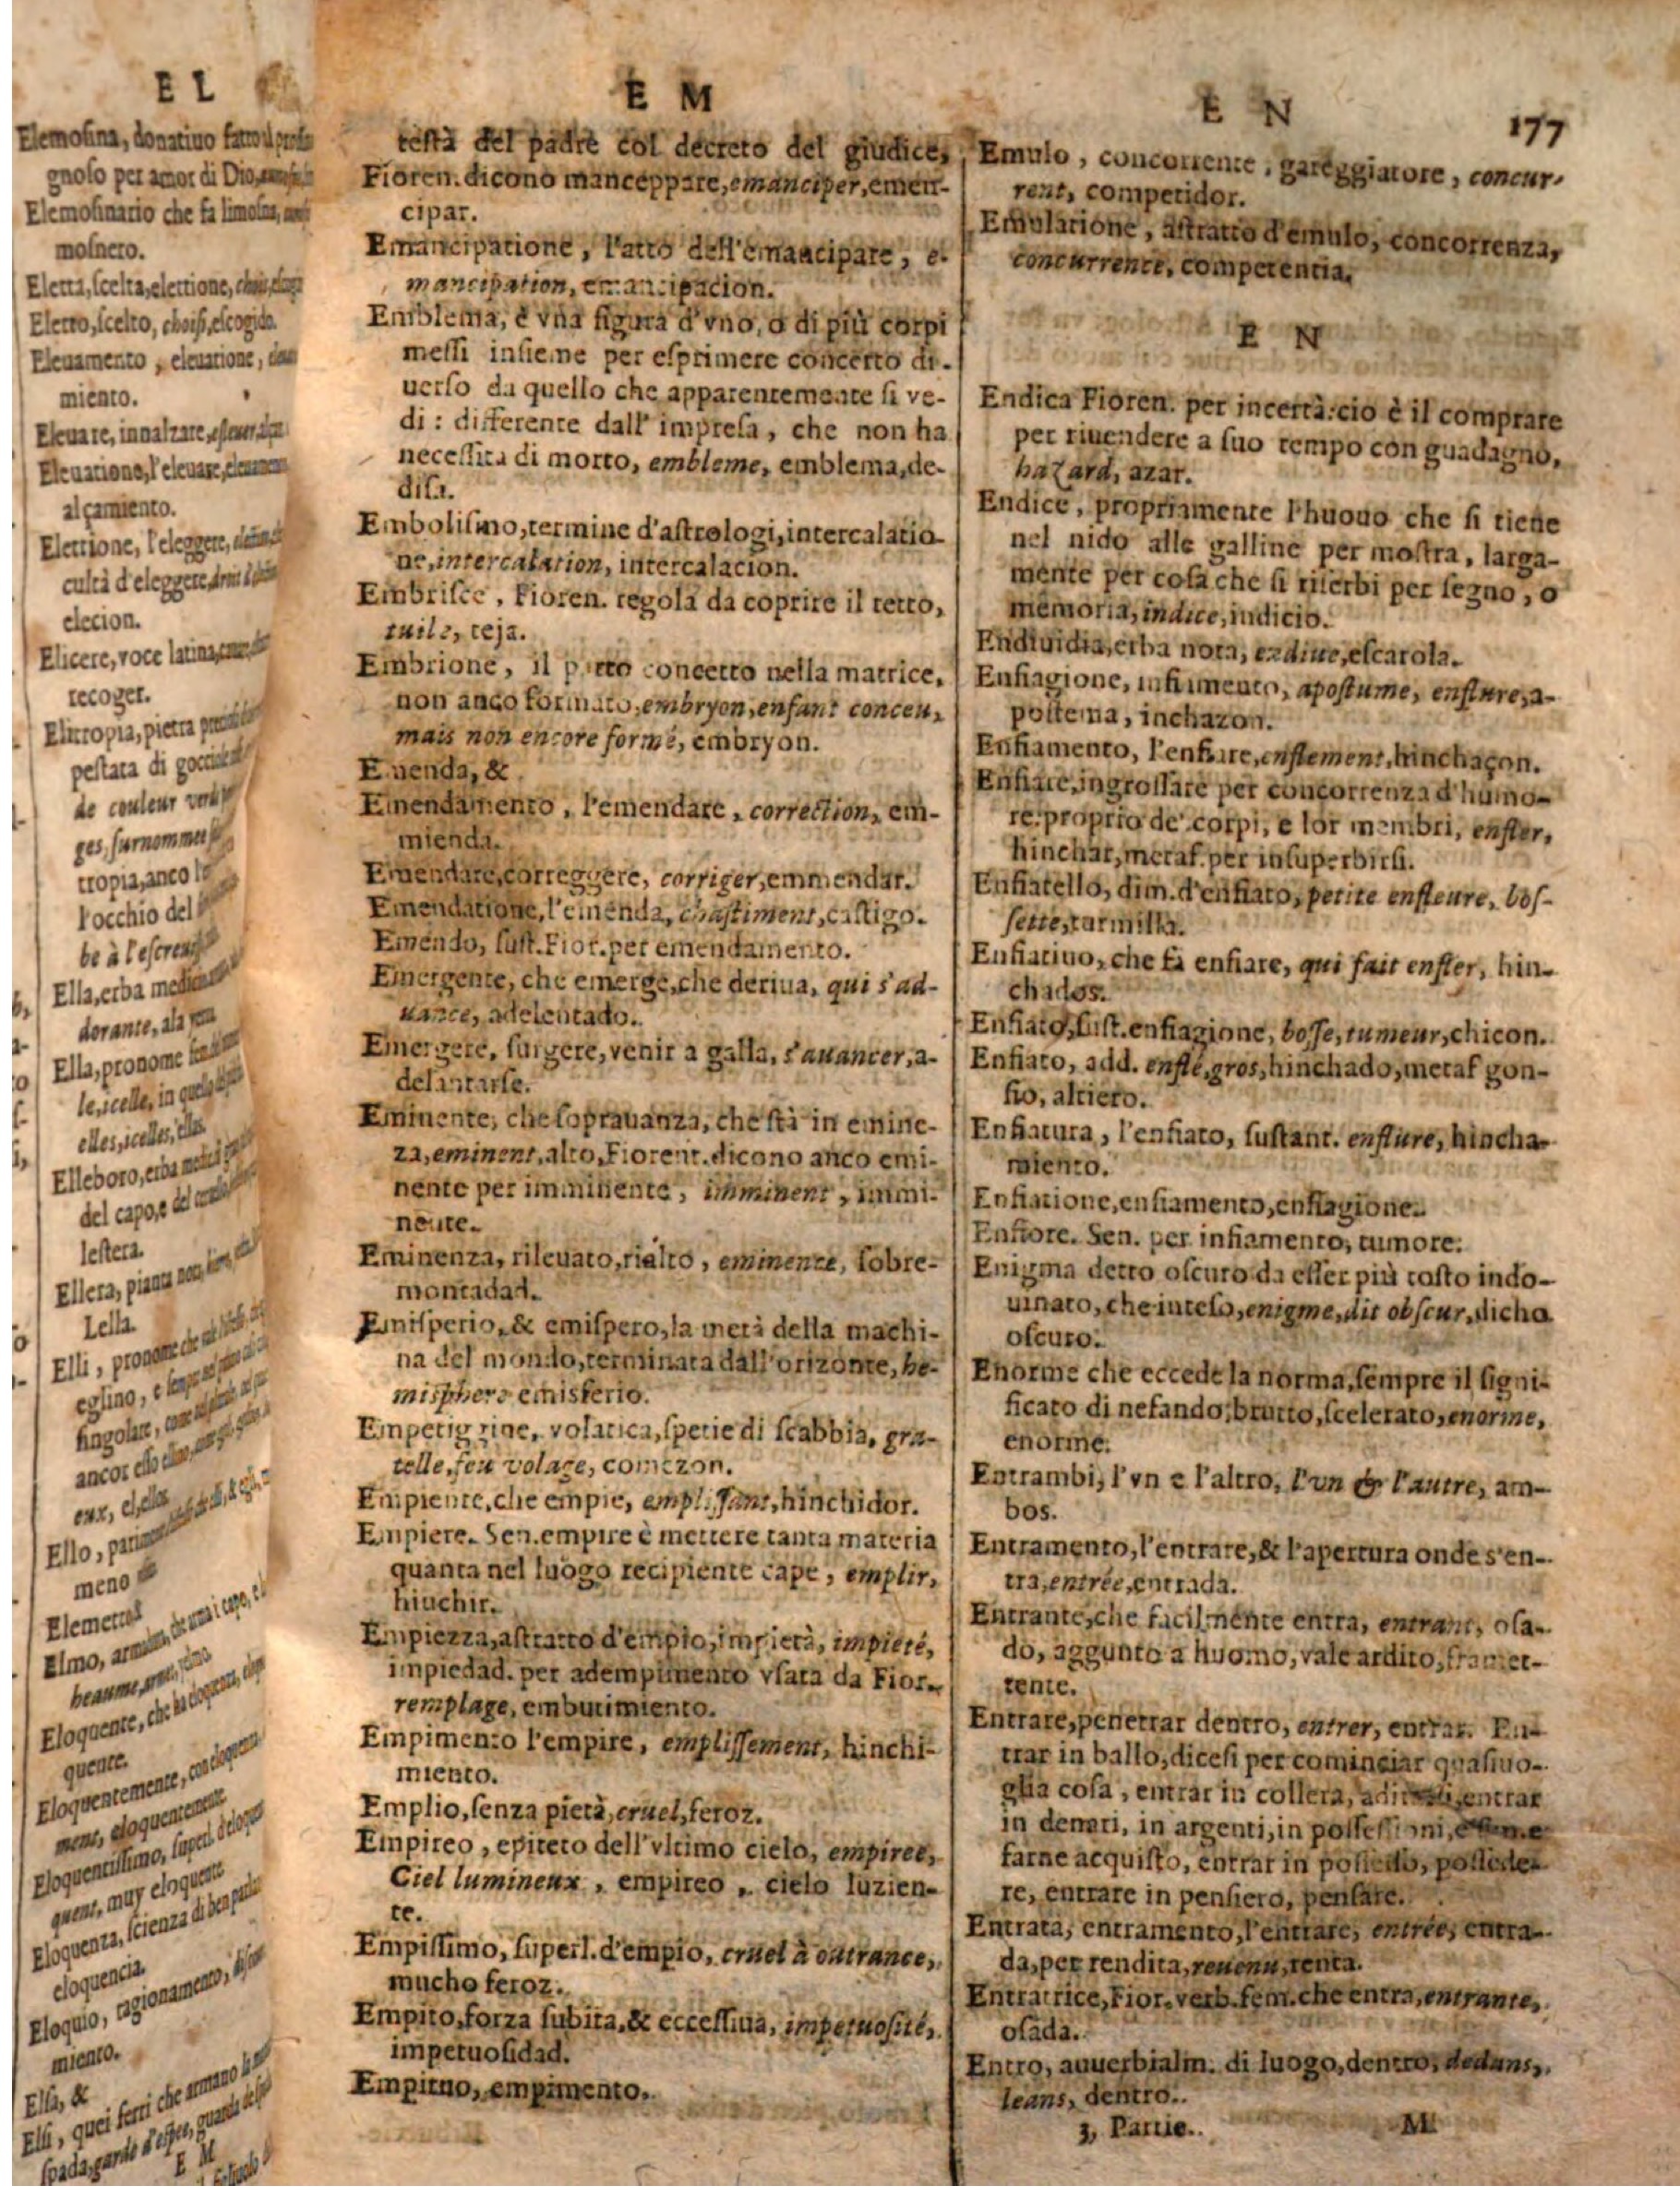 E L
Elemosina, donatiuo fatto
gnoso per amor di Dio,
Elemosinario che fa limosina,
mosnero.
Eletta, scelta, elettione, choix,
Eletto, scelto, choisi, escogido.
Eleuamento, eleuatione,
miento.
Eleuare, innalzare,
Eleuatione, l'eleuare,
alçamiento.
Elettione, l'eleggere,
cultà d'eleggere,
elecion.
Elicere, voce latina,
recoger.
Elitropia, pietra
pestata di
de couleur
ges, surnommee
tropia, anco
l'occhio del
be à l'escreu
Ella, erba
dorante, ala
Ella, pronome
le, icelle, in
elles, icelles, ellas.
Elleboro, erba
del capo, e del
lestera.
Ellera, pianta
Lella.
Elli, pronome che
eglino, e
singolare,
ancor
eux,
Ello,
meno
Elmo,
heaume,
Eloquente, che ha eloquenza,
quente.
Eloquentemente, con eloquenza
ment, eloquentemente.
Eloquentissimo, superl.
quent, muy eloquente
Eloquenza, scienza di ben
eloquencia.
Eloquio, ragionamento,
miento.
Elsa, &
Elsi, quei ferri che armano
spada, garde d'espee,
E M
E M
testà del padre col decreto del giudice,
Fioren. dicono manceppare, emanciper, eman-
cipar.
Emancipatione, l'atto dell'emancipare, e-
mancipation, emancipacion.
Emblema, è vna figura d'vno, o di più corpi
messi insieme per esprimere concetto di-
uerso da quello che apparentemente si ve-
di: differente dall'impresa, che non ha
necessità di motto, embleme, emblema, de-
disa.
Embolismo, termine d'astrologi, intercalatio-
ne, intercalation, intercalacion.
Embrisce, Fioren. regola da coprire il tetto,
tuile, teja.
Embrione, il parto concetto nella matrice,
non anco formato, embryon, enfant conceu,
mais non encore formé, embryon.
Emenda, &
Emendamento, l'emendare, correction, em-
mienda.
Emendare, correggere, corriger, emmendar.
Emendatione, l'emenda, chastiment, castigo.
Emendo, sust. Fior. per emendamento.
Emergente, che emerge, che deriua, qui s'ad-
uance, adelentado.
Emergere, surgere, venir a galla, s'auancer, a-
delantarse.
Eminente, che soprauanza, che stà in emine-
za, eminent, alto, Fiorent. dicono anco emi-
nente per imminente, imminent, immi-
nente.
Eminenza, rileuato, rialto, eminence, sobre-
montadad.
Emisperio, & emispero, la metà della machi-
na del mondo, terminata dall'orizonte, he-
misphere emisferio.
Empetiggine, volatica, spetie di scabbia, gra-
telle, feu volage, comezon.
Empiente, che empie, emplissant, hinchidor.
Empiere. Sen. empire è mettere tanta materia
quanta nel luogo recipiente cape, emplir,
hinchir.
Empiezza, astratto d'empio, impietà, impieté,
impiedad. per adempimento vsata da Fior.
remplage, embutimiento.
Empimento l'empire, emplissement, hinchi-
miento.
Emplio, senza pietà, cruel, feroz.
Empireo, epiteto dell'vltimo cielo, empiree,
Ciel lumineux, empireo, cielo luzien-
te.
Empissimo, superl. d'empio, cruel à outrance,
mucho feroz.
Empito, forza subita, & eccessiua, impetuosité,
impetuosidad.
Empitno, empimento.
E N
177
Emulo, concorrente, gareggiatore, concur-
rent, competidor.
Emulatione, astratto d'emulo, concorrenza,
concurrence, competentia.
E N
Endica Fioren. per incetta: cio è il comprare
per riuendere a suo tempo con guadagno,
hazard, azar.
Endice, propriamente l'huouo che si tiene
nel nido alle galline per mostra, larga-
mente per cosa che si riserbi per segno, o
memoria, indice, indicio.
Endiuidia, erba nota, endiue, escarola.
Enfiagione, infiamento, apostume, enflure, a-
postema, inchazon.
Enfiamento, l'enfiare, enflement, hinchaçon.
Enfiare, ingrossare per concorrenza d'humo-
re: proprio de' corpi, e lor membri, enfler,
hinchar, metaf. per insuperbirsi.
Enfiatello, dim. d'enfiato, petite enfleure, bos-
sette, turmilla.
Enfiatiuo, che fa enfiare, qui fait enfler, hin-
chados.
Enfiato, sust. enfiagione, bosse, tumeur, chicon.
Enfiato, add. enflé, gros, hinchado, metaf gon-
fio, altiero.
Enfiatura, l'enfiato, sustant. enflure, hincha-
miento.
Enfiatione, enfiamento, enfiagione.
Enfiore. Sen. per infiamento, tumore.
Enigma detto oscuro da esser più tosto indo-
uinato, che inteso, enigme, dit obscur, dicho
oscuro.
Enorme che eccede la norma, sempre il signi-
ficato di nefando, brutto, scelerato, enorme,
enorme.
Entrambi, l'vn e l'altro, l'vn & l'autre, am-
bos.
Entramento, l'entrare, & l'apertura onde s'en-
tra, entrée, entrada.
Entrante, che facilmente entra, entrant, osa-
do, aggunto a huomo, vale ardito, framet-
tente.
Entrare, penetrar dentro, entrer, entrar. En-
trar in ballo, dicesi per cominciar qualsiuo-
glia cosa, entrar in collera, adirarsi, entrar
in denari, in argenti, in possessioni,
farne acquisto, entrar in possesso, possede-
re, entrare in pensiero, pensare.
Entrata, entramento, l'entrare, entrée, entra-
da, per rendita, reuenu, renta.
Entratrice, Fior. verb. fem. che entra, entrante,
osada.
Entro, auuerbialm. di luogo, dentro, dedans,
leans, dentro.
3, Partie. M